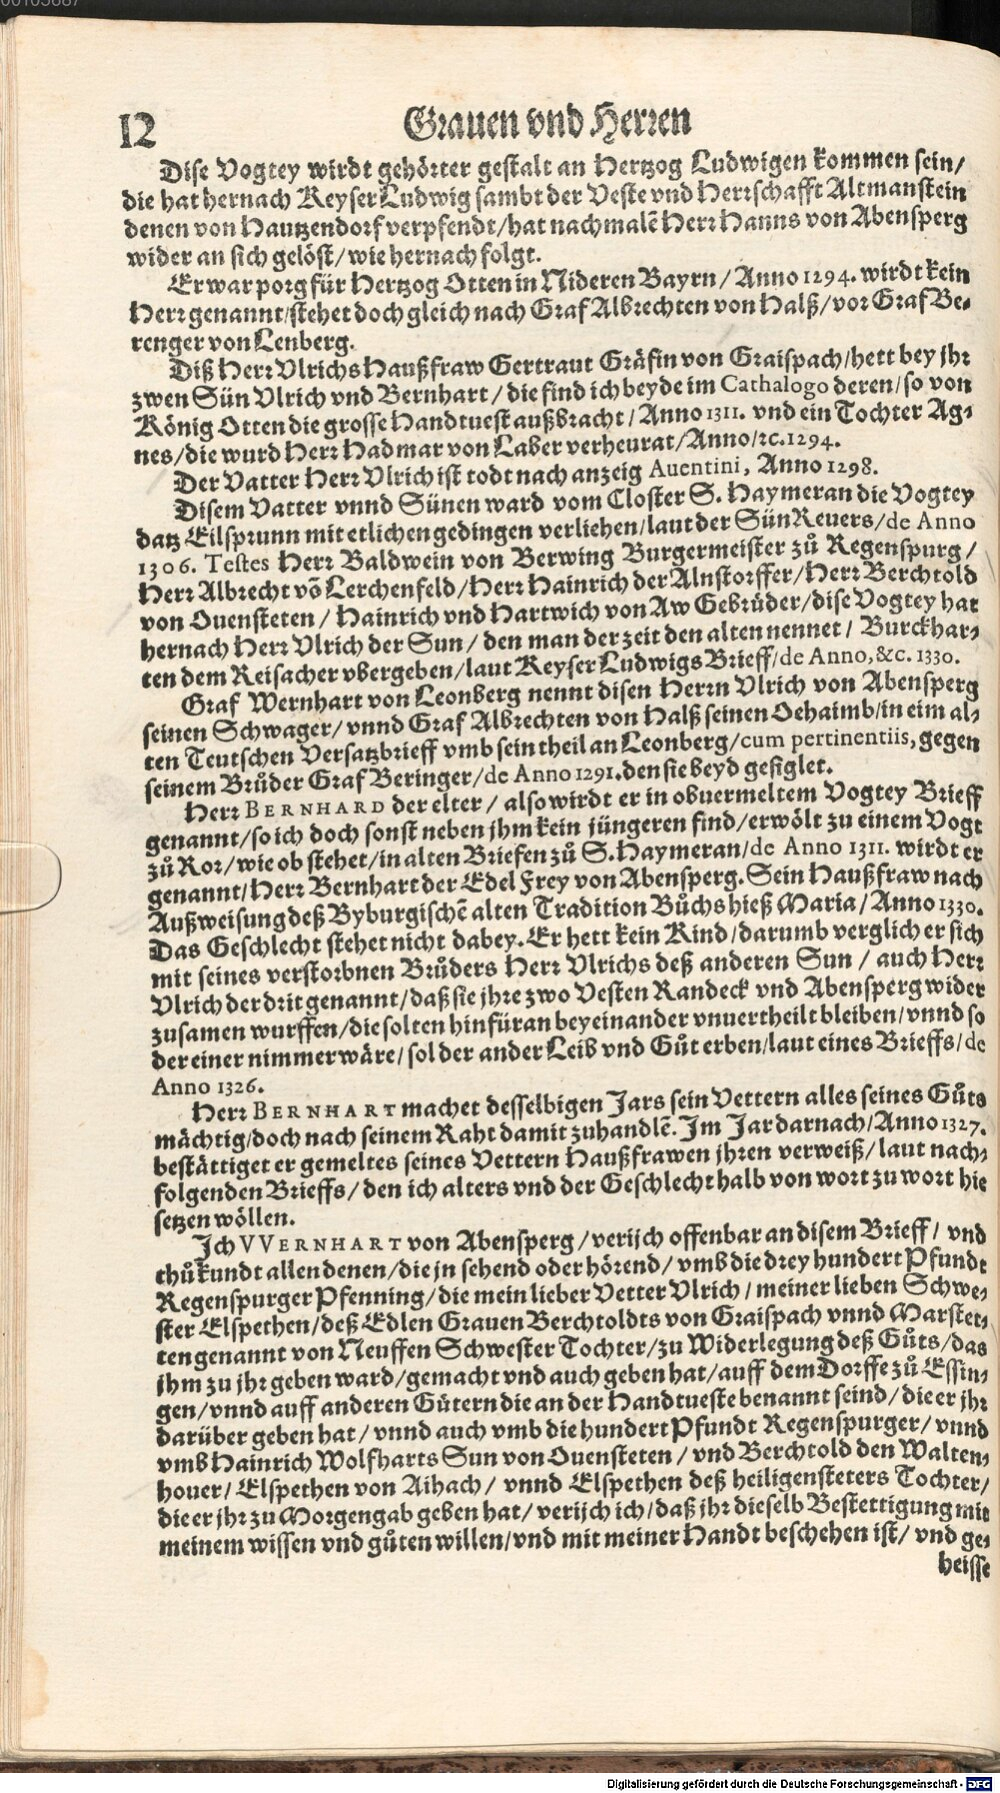 12
Grauen vnd Herren
Dise Vogtey wirdt gehörter gestalt an Hertzog Ludwigen kommen sein/
die hat hernach Keyser Ludwig sambt der Veste vnd Herrschafft Altmanstein
denen von Hautzendorf verpfendt/hat nachmalẽ Herr Hanns von Abensperg
wider an sich gelöst/wie hernach folgt.
Er war porg für Hertzog Otten in Nideren Bayrn/Anno 1294. wirdt kein
Herr genannt/stehet doch gleich nach Graf Albrechten von Halß/vor Graf Be-
renger von Lenberg.
Diß Herr Vlrichs Haußfraw Gertraut Gräfin von Graispach/hett bey jhr
zwen Sün Vlrich vnd Bernhart/die find ich beyde im Cathalogo deren/so von
König Otten die grosse Handtuest außbracht/Anno 1311. vnd ein Tochter Ag-
nes/die wurd Herr Hadmar von Laber verheurat/Anno/ꝛc.1294.
Der Vatter Herr Vlrich ist todt nach anzeig Auentini, Anno 1298.
Disem Vatter vnnd Sünen ward vom Closter S. Haymeran die Vogtey
datz Eilsprunn mit etlichen gedingen verliehen/laut der Sün Reuers/de Anno
1306. Testes Herr Baldwein von Berwing Burgermeister zů Regenspurg/
Herr Albrecht võ Lerchenfeld/Herr Hainrich der Alnstorffer/Herr Berchtold
von Ouensteten/Hainrich vnd Hartwich von Aw Gebrüder/dise Vogtey hat
hernach Herr Vlrich der Sun/den man der zeit den alten nennet/Burckhar-
ten dem Reisacher vbergeben/laut Keyser Ludwigs Brieff/de Anno,&c. 1330.
Graf Wernhart von Leonberg nennt disen Herrn Vlrich von Abensperg
seinen Schwager/vnnd Graf Albrechten von Halß seinen Oehaimb/in eim al-
ten Teutschen Versatzbrieff vmb sein theil an Leonberg/cum pertinentiis, gegen
seinem Brůder Graf Beringer/de Anno 1291. den sie beyd gesiglet.
Herr BERNHARD der elter/also wirdt er in obuermeltem Vogtey Brieff
genannt/so ich doch sonst neben jhm kein jüngeren find/erwölt zu einem Vogt
zů Ror/wie ob stehet/in alten Briefen zů S. Haymeran/de Anno 1311. wirdt er
genannt/Herr Bernhart der Edel Frey von Abensperg. Sein Haußfraw nach
Außweisung deß Byburgischẽ alten Tradition Bůchs hieß Maria/Anno 1330.
Das Geschlecht stehet nicht dabey. Er hett kein Kind/darumb verglich er sich
mit seines verstorbnen Brůders Herr Vlrichs deß anderen Sun/auch Herr
Vlrich der drit genannt/daß sie jhre zwo Vesten Randeck vnd Abensperg wider
zusamen wurffen/die solten hinfüran beyeinander vnuertheilt bleiben/vnnd so
der einer nimmer wäre/sol der ander Leib vnd Gůt erben/laut eines Brieffs/de
Anno 1326.
Herr BERNHART machet desselbigen Jars sein Vettern alles seines Gůts
mächtig/doch nach seinem Raht damit zuhandlẽ. Im Jar darnach/Anno 1327.
bestättiget er gemeltes seines Vettern Haußfrawen jhren verweiß/laut nach-
folgenden Brieffs/den ich alters vnd der Geschlecht halb von wort zu wort hie
setzen wöllen.
Ich VVERNHART von Abensperg/verijch offenbar an disem Brieff/vnd
thů kundt allen denen/die jn sehend oder hörend/vmb die drey hundert Pfundt
Regenspurger Pfenning/die mein lieber Vetter Vlrich/meiner lieben Schwe-
ster Elspethen/deß Edlen Grauen Berchtoldts von Graispach vnnd Marstet-
ten genannt von Neuffen Schwester Tochter/zu Widerlegung deß Gůts/das
jhm zu jhr geben ward/gemacht vnd auch geben hat/auff dem Dorffe zů Essin-
gen/vnnd auff anderen Gütern die an der Handtueste benannt seind/die er jhr
darüber geben hat/vnnd auch vmb die hundert Pfundt Regenspurger/vnnd
vmb Hainrich Wolfharts Sun von Ouensteten/vnd Berchtold den Walten-
houer/Elspethen von Aihach/vnnd Elspethen deß heiligensteters Tochter/
die er jhr zu Morgengab geben hat/verijch ich/daß jhr dieselb Bestettigung mit
meinem wissen vnd gůten willen/vnd mit meiner Handt beschehen ist/vnd ge-
heisse
Digitalisierung gefördert durch die Deutsche Forschungsgemeinschaft - DFG